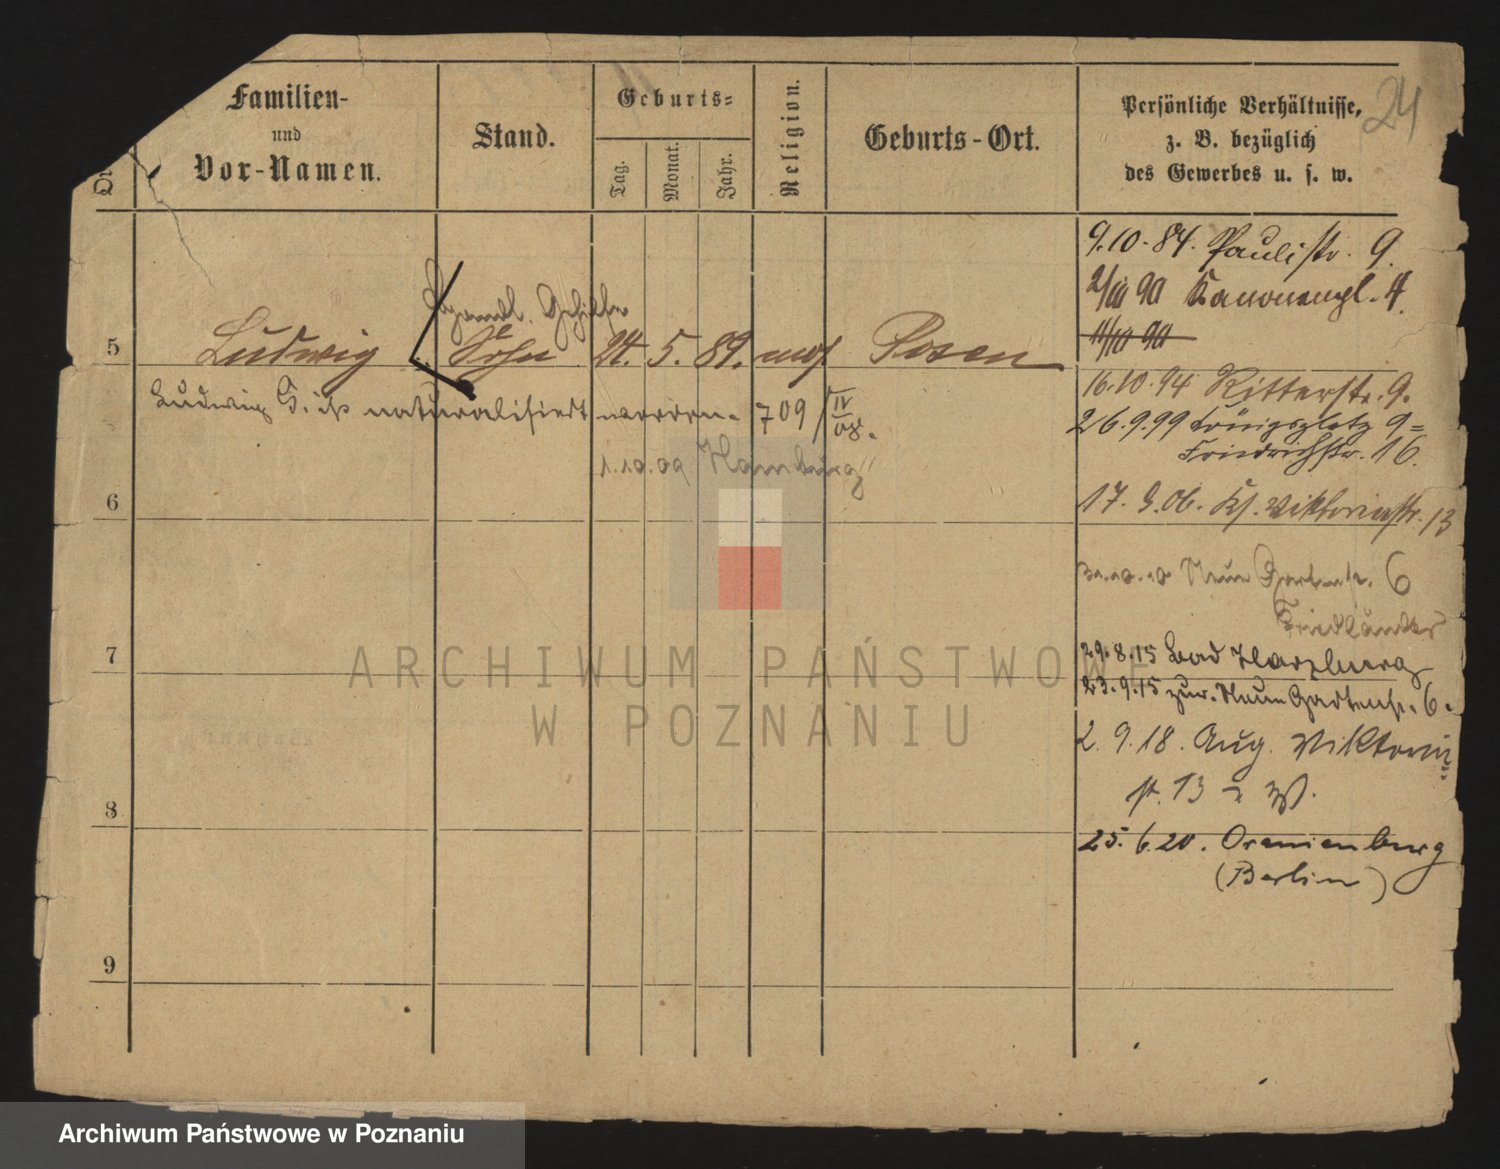 Familien-
und
Vor-Namen.
Stand.
Geburts-
Tag.
Monat.
Jahr.
Religion.
Geburts-Ort.
Persönliche Verhältnisse,
z. B. bezüglich
des Gewerbes u. s. w.
24
5
Gehilfe
Ludwig
Sohn
24. 5. 89. mos
Posen
Ludwig G. ist naturalisiert worden. 709/IV 08.
1.10.09 Hamburg
6
7
8
9
9.10.84. Paulistr. 9.
2/III 90 Kanonenpl. 4.
16.10.94 Ritterstr. 9.
26.9.99 Königsplatz 9=
Friedrichstr. 16.
17. 9. 06. Kl. Viktoriastr. 13
31.10.10 Neue Gartenstr. 6
Friedländer
29.8.15 Bad Harzburg
23.9.15 zur. Neue Gartenstr. 6.
2. 9. 18. Aug. Viktoria
str. 13
25. 6. 20. Oranienburg
(Berlin)
ARCHIWUM PAŃSTWOWE
W POZNANIU
Archiwum Państwowe w Poznaniu